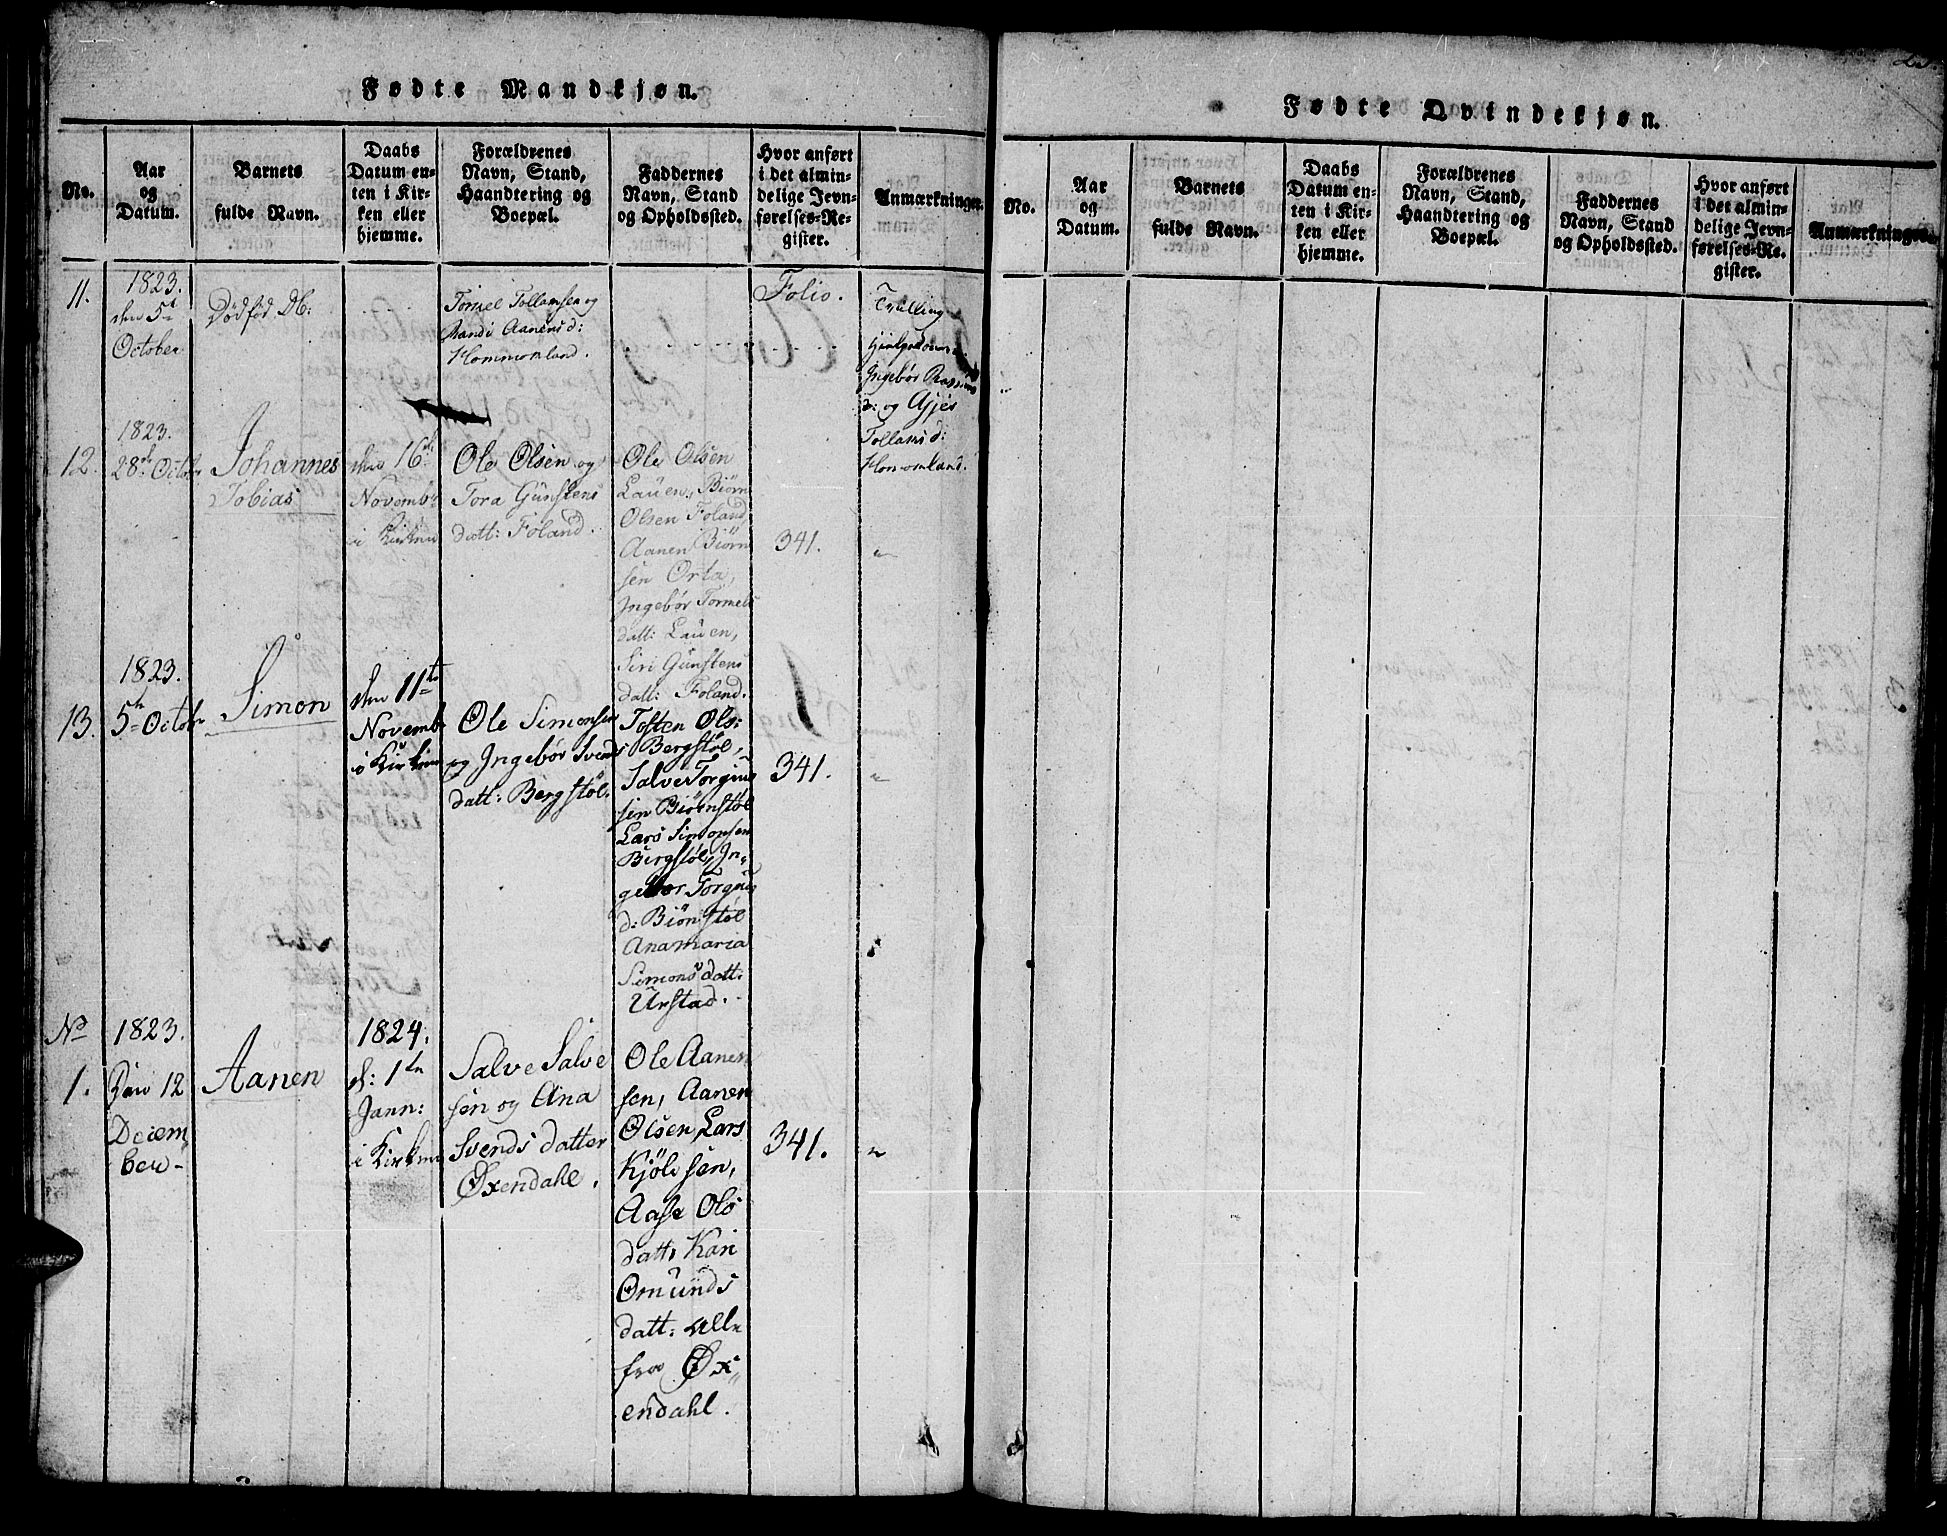 Fødte Mandkjøn.
No.
Aar
og
Datum.
Barnets
fulde Navn.
Daabs
Datum en-
ten i Kir-
ken eller
hjemme.
Forældrenes
Navn, Stand,
Haandtering og
Boepæl.
Faddernes
Navn, Stand
og Opholdssted.
Hvor anført
i det almin-
delige Jevn-
førelses-Re-
gister.
Anmærkninger.
11.
1823.
den 5t
October
Dödfød Db:
Tormel Tollamsen og
Randi Aanensd:
Hommomland.
Folio.
Trilling
Ingebör
d: og
Tollamsd:
12.
1823.
28de Octob
Johannes
Tobias
den 16d
Novemb
i Kirken
Ole Olsen og
Tora Günstens
datt: Foland.
Ole Olsen
Lauen, Biörn
Olsen Foland,
Aanen Biörn
sen Orta,
Ingebör Tormels
datt: Lauen,
Siri Günstens
datt: Foland.
341.
"
13.
1823.
5te Octobr
Simon
den 11te
Novemb
i Kirken
Ole Simonsen
og Ingebör Svends
datt: Bergstöl.
Tosten Ols:
Bergstöl,
Salve Torgius
sen Biörnstöl
Lars Simonsen
Bergstöl, In-
gebor Torgius
d: Biönstöl
Anamaria
Simonsdatt:
Urstad.
341.
"
No
1.
1823.
Den 12
Decem
ber
Aanen
1824.
d: 1te
Jann:
i Kirken
Salve Salve
sen og Ana
Svends datter
Øxendahl.
Ole Aanen
sen, Aanen
Olsen, Lars
Kjöle sen,
Aase Ols
datt: Kari
Omünds
datt: alle
fra Øx-
endahl.
341.
"
Fødte Qvindekjøn.
No.
Aar
og
Datum.
Barnets
fulde Navn.
Daabs
Datum en-
ten i Kir-
ken eller
hjemme.
Forældrenes
Navn, Stand,
Haandtering og
Boepæl.
Faddernes
Navn, Stand
og Opholdssted.
Hvor anført
i det almin-
delige Jevn-
førelses-Re-
gister.
Anmærkninger.